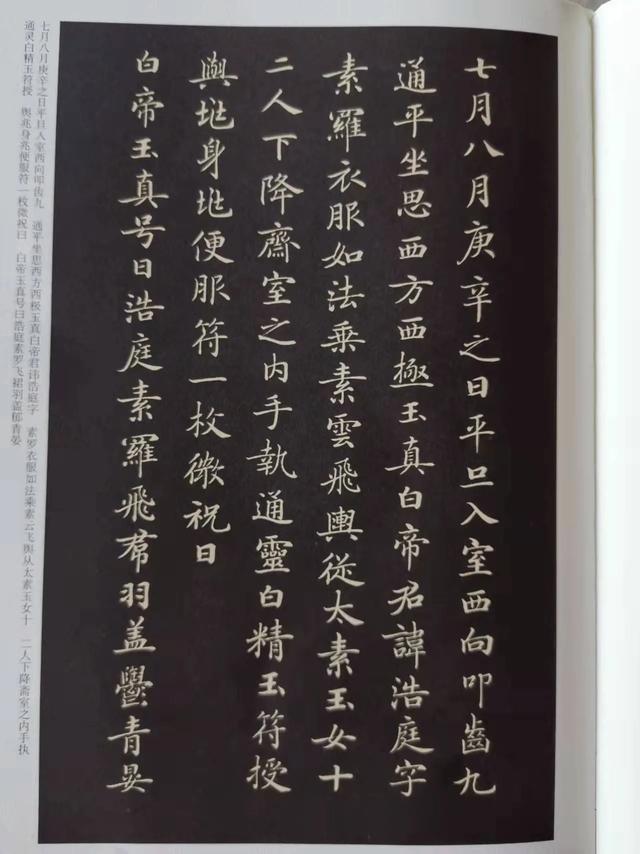 七月八月庚辛之日平旦入室西向叩齒九
通平坐思西方西極玉真白帝君諱浩庭字
素羅衣服如法乗素雲飛輿從太素玉女十
二人下降齋室之内手執通靈白精玉符授
與垗身垗便服符一枚微祝曰
白帝玉真号曰浩庭素羅飛帬羽盖鬱青晏
七月八月庚辛之日平旦入室西向叩齿九 通平坐思西方西极玉真白帝君讳浩庭字 素罗衣服如法乘素云飞舆从太素玉女十 二人下降斋室之内手执
通灵白精玉符授 舆兆身兆便服符一枚微祝曰 白帝玉真号曰浩庭素罗飞裙羽盖郁青晏